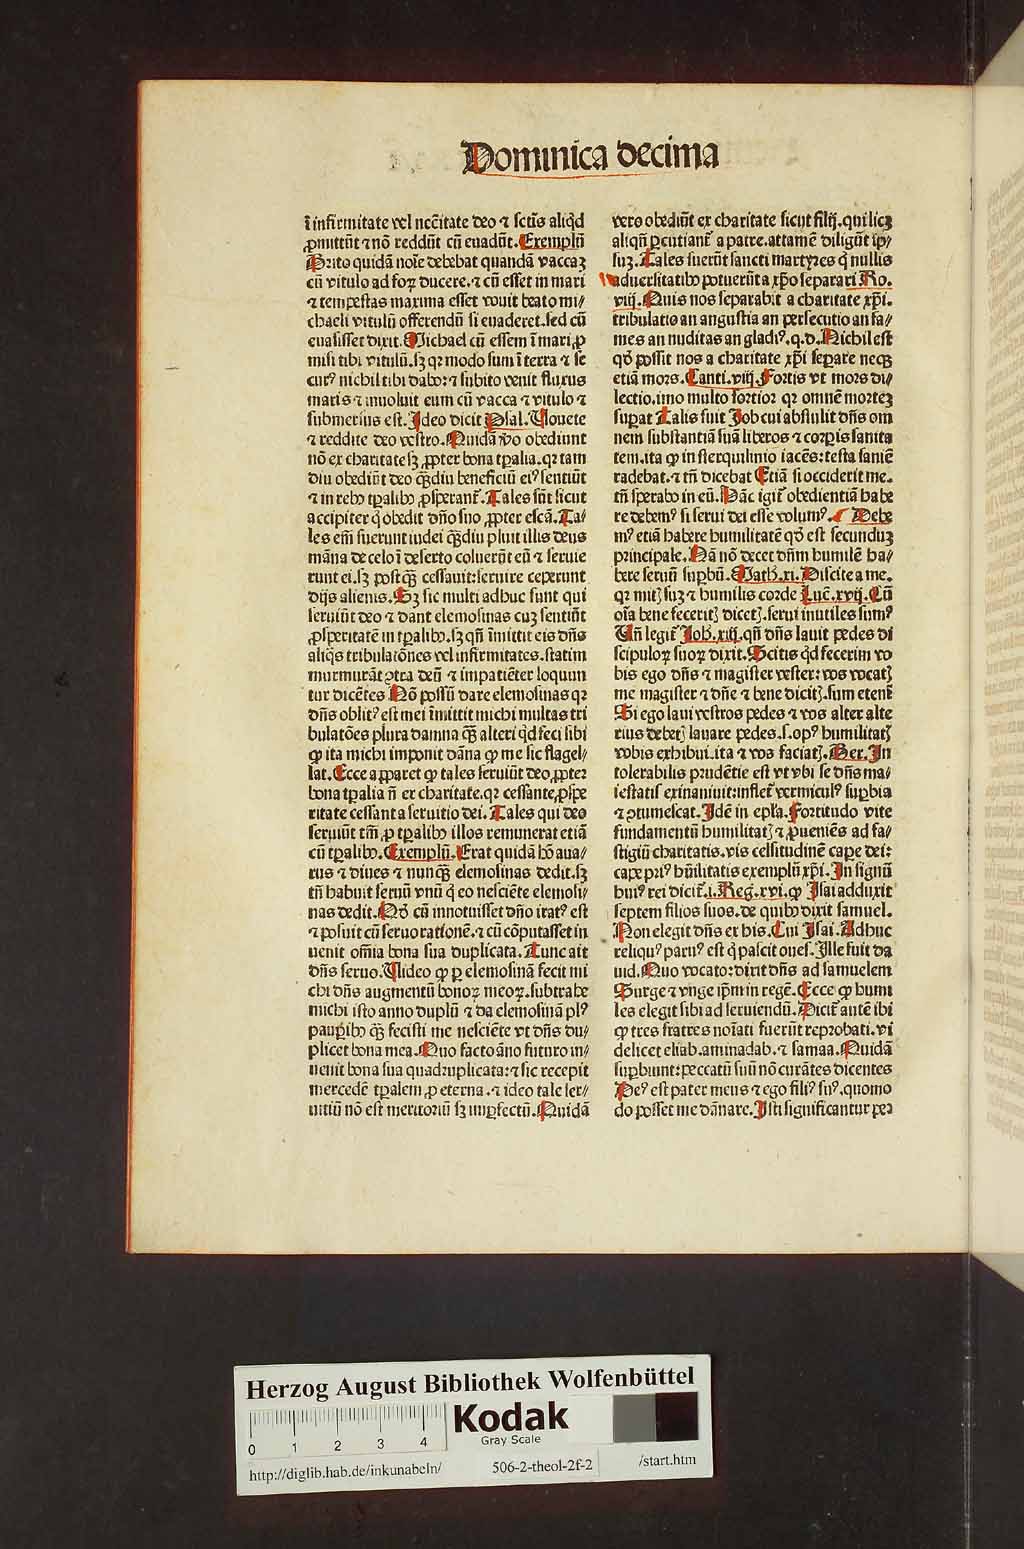 Dominica decima
ĩ infirmitate vel nccītate deo ⁊ sctīs aliq̄d
ꝓmittūt ⁊ nō reddūt cū euadūt. Exemplū
Brito quidā noīe debebat quandā vaccaꝫ
cū vitulo ad foꝝ ducere. ⁊ cū esset in mari
⁊ tempestas maxima esset vouit beato mi⸗
chaeli vitulū offerendū si euaderet. sed cū
euasisset dixit. Michael cū essem ĩ mari ꝓ
misi tibi vitulū. sꝫ qꝛ modo sum ĩ terra ⁊ se
curꝰ nichil tibi dabo: ⁊ subito venit fluxus
maris ⁊ inuoluit eum cū vacca ⁊ vitulo ⁊
submersus est. Ideo dicit Psal. Vouete
⁊ reddite deo vestro. Quidā v̄o obediunt
nō ex charitate sꝫ ꝓpter bona tp̄alia. qꝛ tam
diu obediūt deo qꝫdiu beneficiū eiꝰ sentiūt
⁊ in rebꝰ tp̄alibꝰ ꝓsperant᷑. Tales sūt sicut
accipiter q̄ obedit dn̄o suo ꝓpter escā. Ta⸗
les em̄ fuerunt iudei qꝫdiu pluit illis deus
māna de celo ĩ deserto coluerūt eū ⁊ seruie
runt ei. sꝫ postqꝫ cessauit: seruire ceperunt
dijs alienis. Sꝫ sic multi adhuc sunt qui
seruiūt deo ⁊ dant elemosinas cuꝫ sentiūt
ꝓsperitatē in tp̄alibꝰ. sꝫ qn̄ ĩmittit eis dn̄s
aliq̄s tribulatōnes vel infirmitates. statim
murmurāt ꝯtra deū ⁊ impatiēter loquun
tur dicētes Nō possū dare elemosinas qꝛ
dn̄s oblitꝰ est mei ĩmittit michi multas tri
bulatōes plura damna qꝫ alteri q̄d feci sibi
ꝙ ita michi imponit dāna ꝙ me sic flagel⸗
lat. Ecce apparet ꝙ tales seruiūt deo ꝓpter
bona tp̄alia n̄ ex charitate. qꝛ cessante ꝓspe
ritate cessant a seruitio dei. Tales qui deo
seruiūt tm̄ ꝓ tp̄alibꝰ illos remunerat etiā
cū tp̄alibꝰ. Exemplū. Erat quidā hō aua⸗
rus ⁊ diues ⁊ nunqꝫ elemosinas dedit. sꝫ
tn̄ habuit seruū vnū q̄ eo nesciēte elemosi⸗
nas dedit. Nō cū innotuisset dn̄o iratꝰ est
⁊ posuit cū seruo rationē. ⁊ cū cōputasset in
uenit om̄ia bona sua duplicata. Tunc ait
dn̄s seruo. Video ꝙ ꝑ elemosinā fecit mi
chi dn̄s augmentū bonoꝝ meoꝝ. subtrahe
michi isto anno duplū ⁊ da elemosinā plꝰ
pauꝑibꝰ qꝫ fecisti me nesciēte vt dn̄s du⸗
plicet bona mea. Quo facto āno futuro in⸗
uenit bona sua quadruplicata: ⁊ sic recepit
mercedē tp̄alem ꝓ eterna. ⁊ ideo tale ser⸗
uitiū nō est meritoriū sꝫ imꝑfectū. Quidā
vero obediūt ex charitate sicut filij. qui licꝫ
aliqn̄ ꝑcutiant᷑ a patre. attamē diligūt ip̄⸗
suꝫ. Tales fuerūt sancti martyres q̄ nullis
aduersitatibꝰ potuerūt a xp̄o separari Ro.
viij. Quis nos separabit a charitate xp̄i.
tribulatio an angustia an persecutio an fa⸗
mes an nuditas an gladiꝰ. q. d. Nichil est
qd̄ possit nos a charitate xp̄i separe necꝫ
etiā mors. Canti. viij. Fortis vt mors di⸗
lectio. imo multo fortior qꝛ omnē morteꝫ
suꝑat Talis fuit Job cui abstulit dn̄s om
nem substantiā suā liberos ⁊ corꝑis sanita
tem. ita ꝙ in sterquilinio iacēs: testa saniē
radebat. ⁊ tn̄ dicebat Etiā si occiderit me.
tn̄ sperabo in eū. Hāc igit᷑ obedientiā habe
re debemꝰ si serui dei esse volumꝰ. Debe
mꝰ etiā habere humilitatē qd̄ est secunduꝫ
principale. Nā nō decet dn̄m humilē ha⸗
bere seruū suꝑbū. Math. xi. Discite a me.
qꝛ mitꝭ suꝫ ⁊ humilis corde Luc̄. xvij. Cū
oīa bene feceritꝭ dicetꝭ. serui inutiles sumꝰ
Vn̄ legit᷑ Joh̄. xiij. qn̄ dn̄s lauit pedes di
scipuloꝝ suoꝝ dixit. Scitis q̄d fecerim vo
bis ego dn̄s ⁊ magister vester: vos vocatꝭ
me magister ⁊ dn̄e ⁊ bene dicitꝭ. sum etenī
Si ego laui vestros pedes ⁊ vos alter alte
rius debetꝭ lauare pedes. s. opꝰ humilitatꝭ
vobis exhibui. ita ⁊ vos faciatꝭ. Ber. In
tolerabilis prudētie est vt vbi se dn̄s ma⸗
iestatis exinaniuit: inflet᷑ vermiculꝰ suꝑbia
⁊ ꝯtumescat. Idē in ep̄la. Fortitudo vite
fundamentū humilitatꝭ ⁊ ꝓueniēs ad fa⸗
stigiū charitatis. vis celsitudinē caꝑe dei:
caꝑe priꝰ hūilitatis exemplū xp̄i. In signū
huiꝰ rei dicit᷑. i. Reg. xvi. ꝙ Isai adduxit
septem filios suos. de quibꝰ dixit samuel.
Non elegit dn̄s ex his. Cui Isai. Adhuc
reliquꝰ paruꝰ est q̄ pascit oues. Ille fuit da
uid. Quo vocato: dixit dn̄s ad samuelem
Surge ⁊ vnge ip̄m in regē. Ecce ꝙ humi
les elegit sibi ad seruiendū. Dicit᷑ autē ibi
ꝙ tres fratres noīati fuerūt reprobati. vi
delicet eliab. aminadab. ⁊ samaa. Quidā
suꝑbiunt: peccatū suū nō curātes dicentes
Deꝰ est pater meus ⁊ ego filiꝰ suꝰ. quomo
do posset me dānare. Isti significantur per
Herzog August Bibliothek Wolfenbüttel
0 1 2 3 4
Kodak
Gray Scale
http://diglib.hab.de/inkunabeln/ 506-2-theol-2f-2 /start.htm